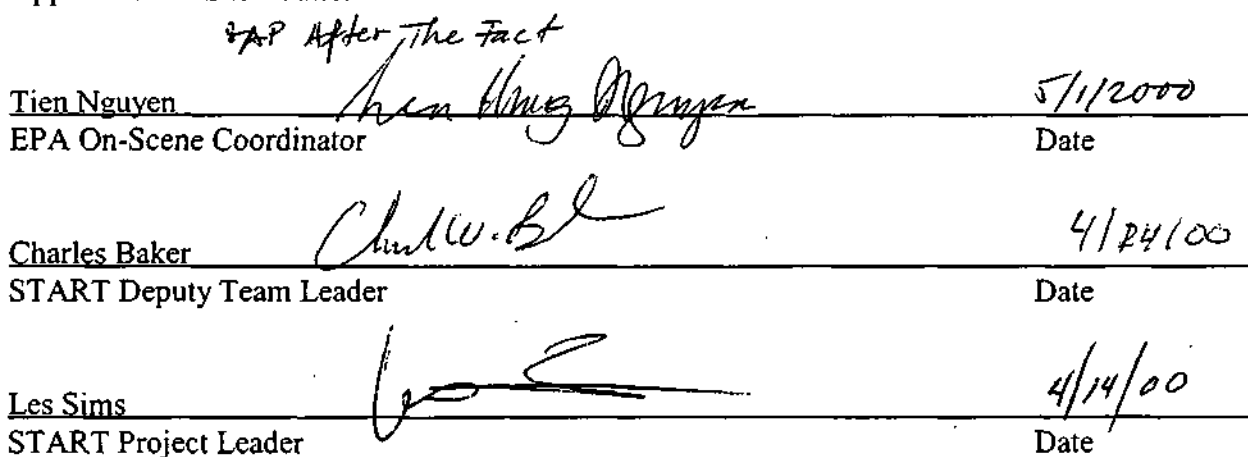 SAP After The Fact
Tien Nguyen Tien Hung Nguyen 5/1/2000
EPA On-Scene Coordinator Date
Charles Baker Charles W. B 4/24/00
START Deputy Team Leader Date
Les Sims 4/14/00
START Project Leader Date